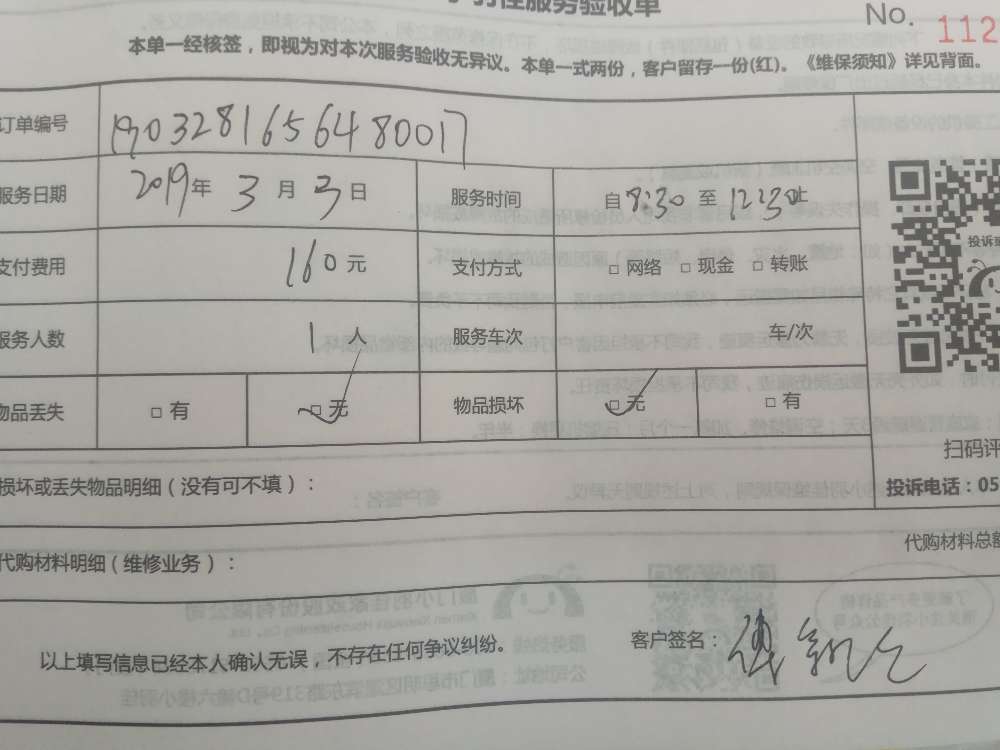 服务验收单
No. 112
本单一经核签，即视为对本次服务验收无异议。本单一式两份，客户留存一份(红)。《维保须知》详见背面。
订单编号 19032816564480017
服务日期 2019年 3 月 3 日 服务时间 自 8:30 至 12:30 止
支付费用 160 元 支付方式 □ 网络 □ 现金 □ 转账
服务人数 1 人 服务车次 车/次
物品丢失 □ 有 □ 无 物品损坏 □ 无 □ 有
扫码评
损坏或丢失物品明细（没有可不填）：
投诉电话：05
代购材料明细（维修业务）：
代购材料总额
以上填写信息已经本人确认无误，不存在任何争议纠纷。
客户签名：